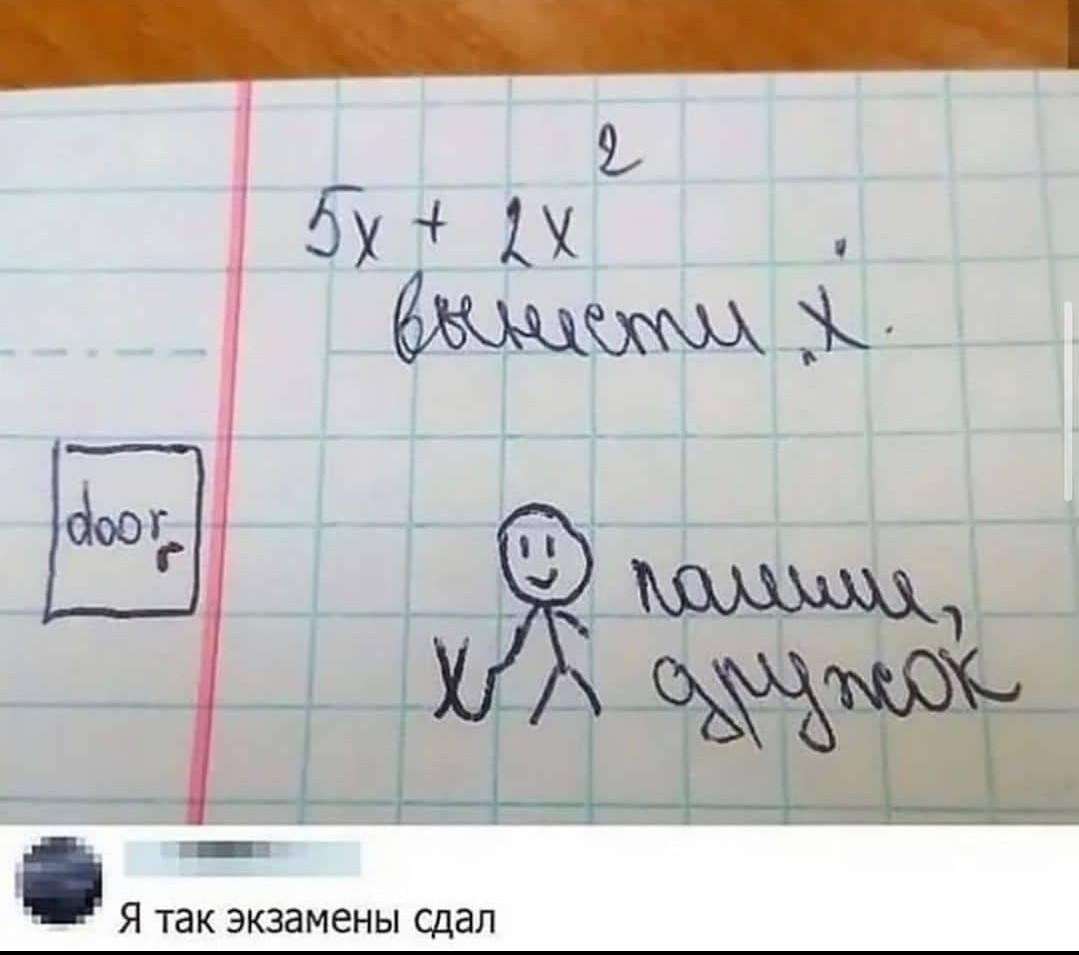 5x + 2x²
вынести „x".
door
пошли,
x
дружок
Я так экзамены сдал